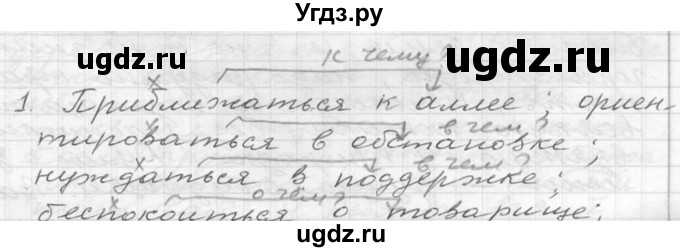 Угдз.ру
ugdz.ru ugdz.ru
к чему?
1. Приближаться к аллее; ориен-
тироваться в обстановке;
в чем?
нуждаться в поддержке;
в чем?
беспокоиться о товарище;
о чём?
ugdz.ru ugdz.ru